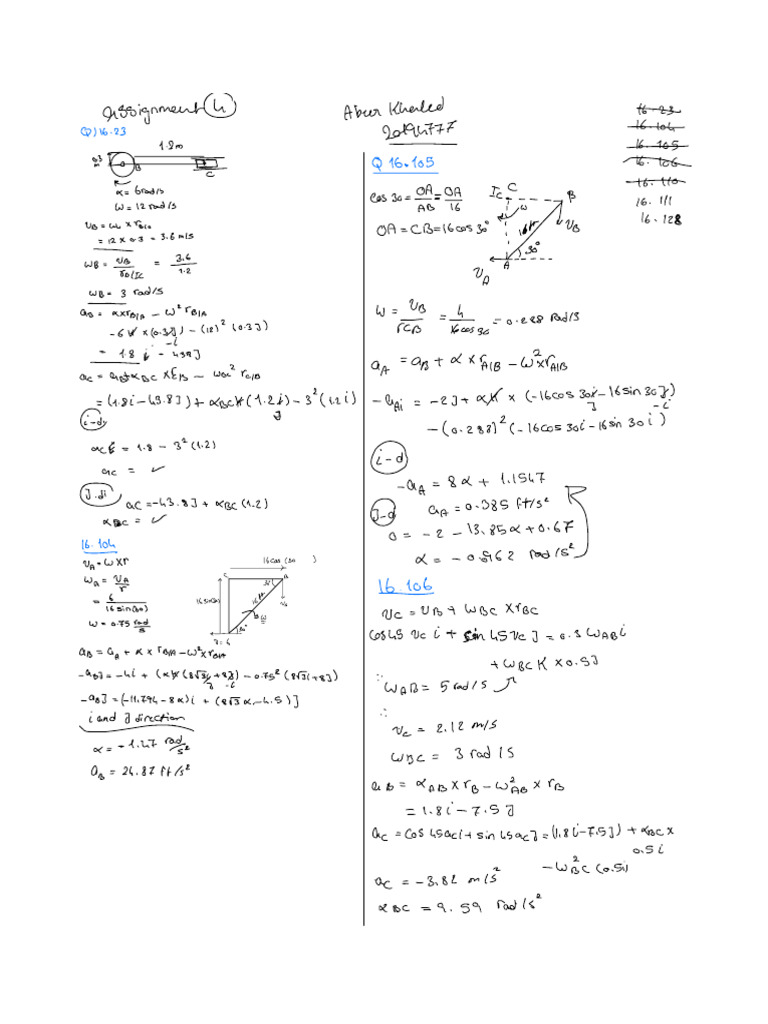 Assignment 4
Abeer Khaled
20194777
16-23
16-104
16.105
16.106
16.110
16.111
16.128
Q)16.23
1.2m
0.3
m
B
C
α = 6rad/s
ω = 12 rad/s
= 12 × 0.3 = 3.6 m/s
ωB = vB / rB/Ic = 3.6 / 1.2
ωB = 3 rad/s
aB = α×rB/A − ω² rB/A
−6k × (0.3J) − (12)² (0.3J)
-i
= 1.8 i − 43.8J
= (1.8i − 43.8J) + αBC k (1.2i) − 3² (1.2i)
J
i-d
= 1.8 − 3² (1.2)
ac = ✓
J-di
ac = −43.8J + αBC (1.2)
αBC = ✓
16.104
vA = ω×r
ωA = vA / r
= 6 / 16 sin(30)
ω = 0.75 rad/s
16cos(30)
16sin(30)
C
30°
16ft
aB = aA + α × rB/A − ω² rB/A
−aBJ = −4i + (αk(8√3i + 8J) − 0.75² (8√3i + 8J)
J -i
−aBJ = (−11.794 − 8α)i + (8√3 α − 4.5)J
i and J direction
α = −1.47 rad/s²
aB = 24.87 ft/s²
Q 16.105
cos 30 = OA/AB = OA/16
OA = CB = 16cos30°
Ic C
B
ω
16ft
vB
30°
A
vA
ω = vB / rCB = 4 / 16cos30 = 0.288 rad/s
aA = aB + α × rA/B − ω² × rA/B
−aAi = −2J + αk × (−16cos 30i − 16sin 30J)
J -i
− (0.288)² (−16cos 30i − 16sin 30i)
i-d
−aA = 8α + 1.1547
aA = 0.385 ft/s²
J-d
0 = −2 − 13.85α + 0.67
α = −0.0962 rad/s²
16 106
vC = vB + ωBC × rBC
cos45 vC i + sin 45 vC J = 0.3 ωAB i
+ ωBC k × 0.5J
∵ ωAB = 5 rad/s
∴
vC = 2.12 m/s
ωBC = 3 rad/s
aB = αAB × rB − ω²AB × rB
= 1.8i − 7.5J
aC = cos 45aCi + sin 45aCJ = (1.8i − 7.5J) + αBC ×
0.5i
− ω²BC (0.5i)
aC = −3.82 m/s²
αBC = 9.59 rad/s²